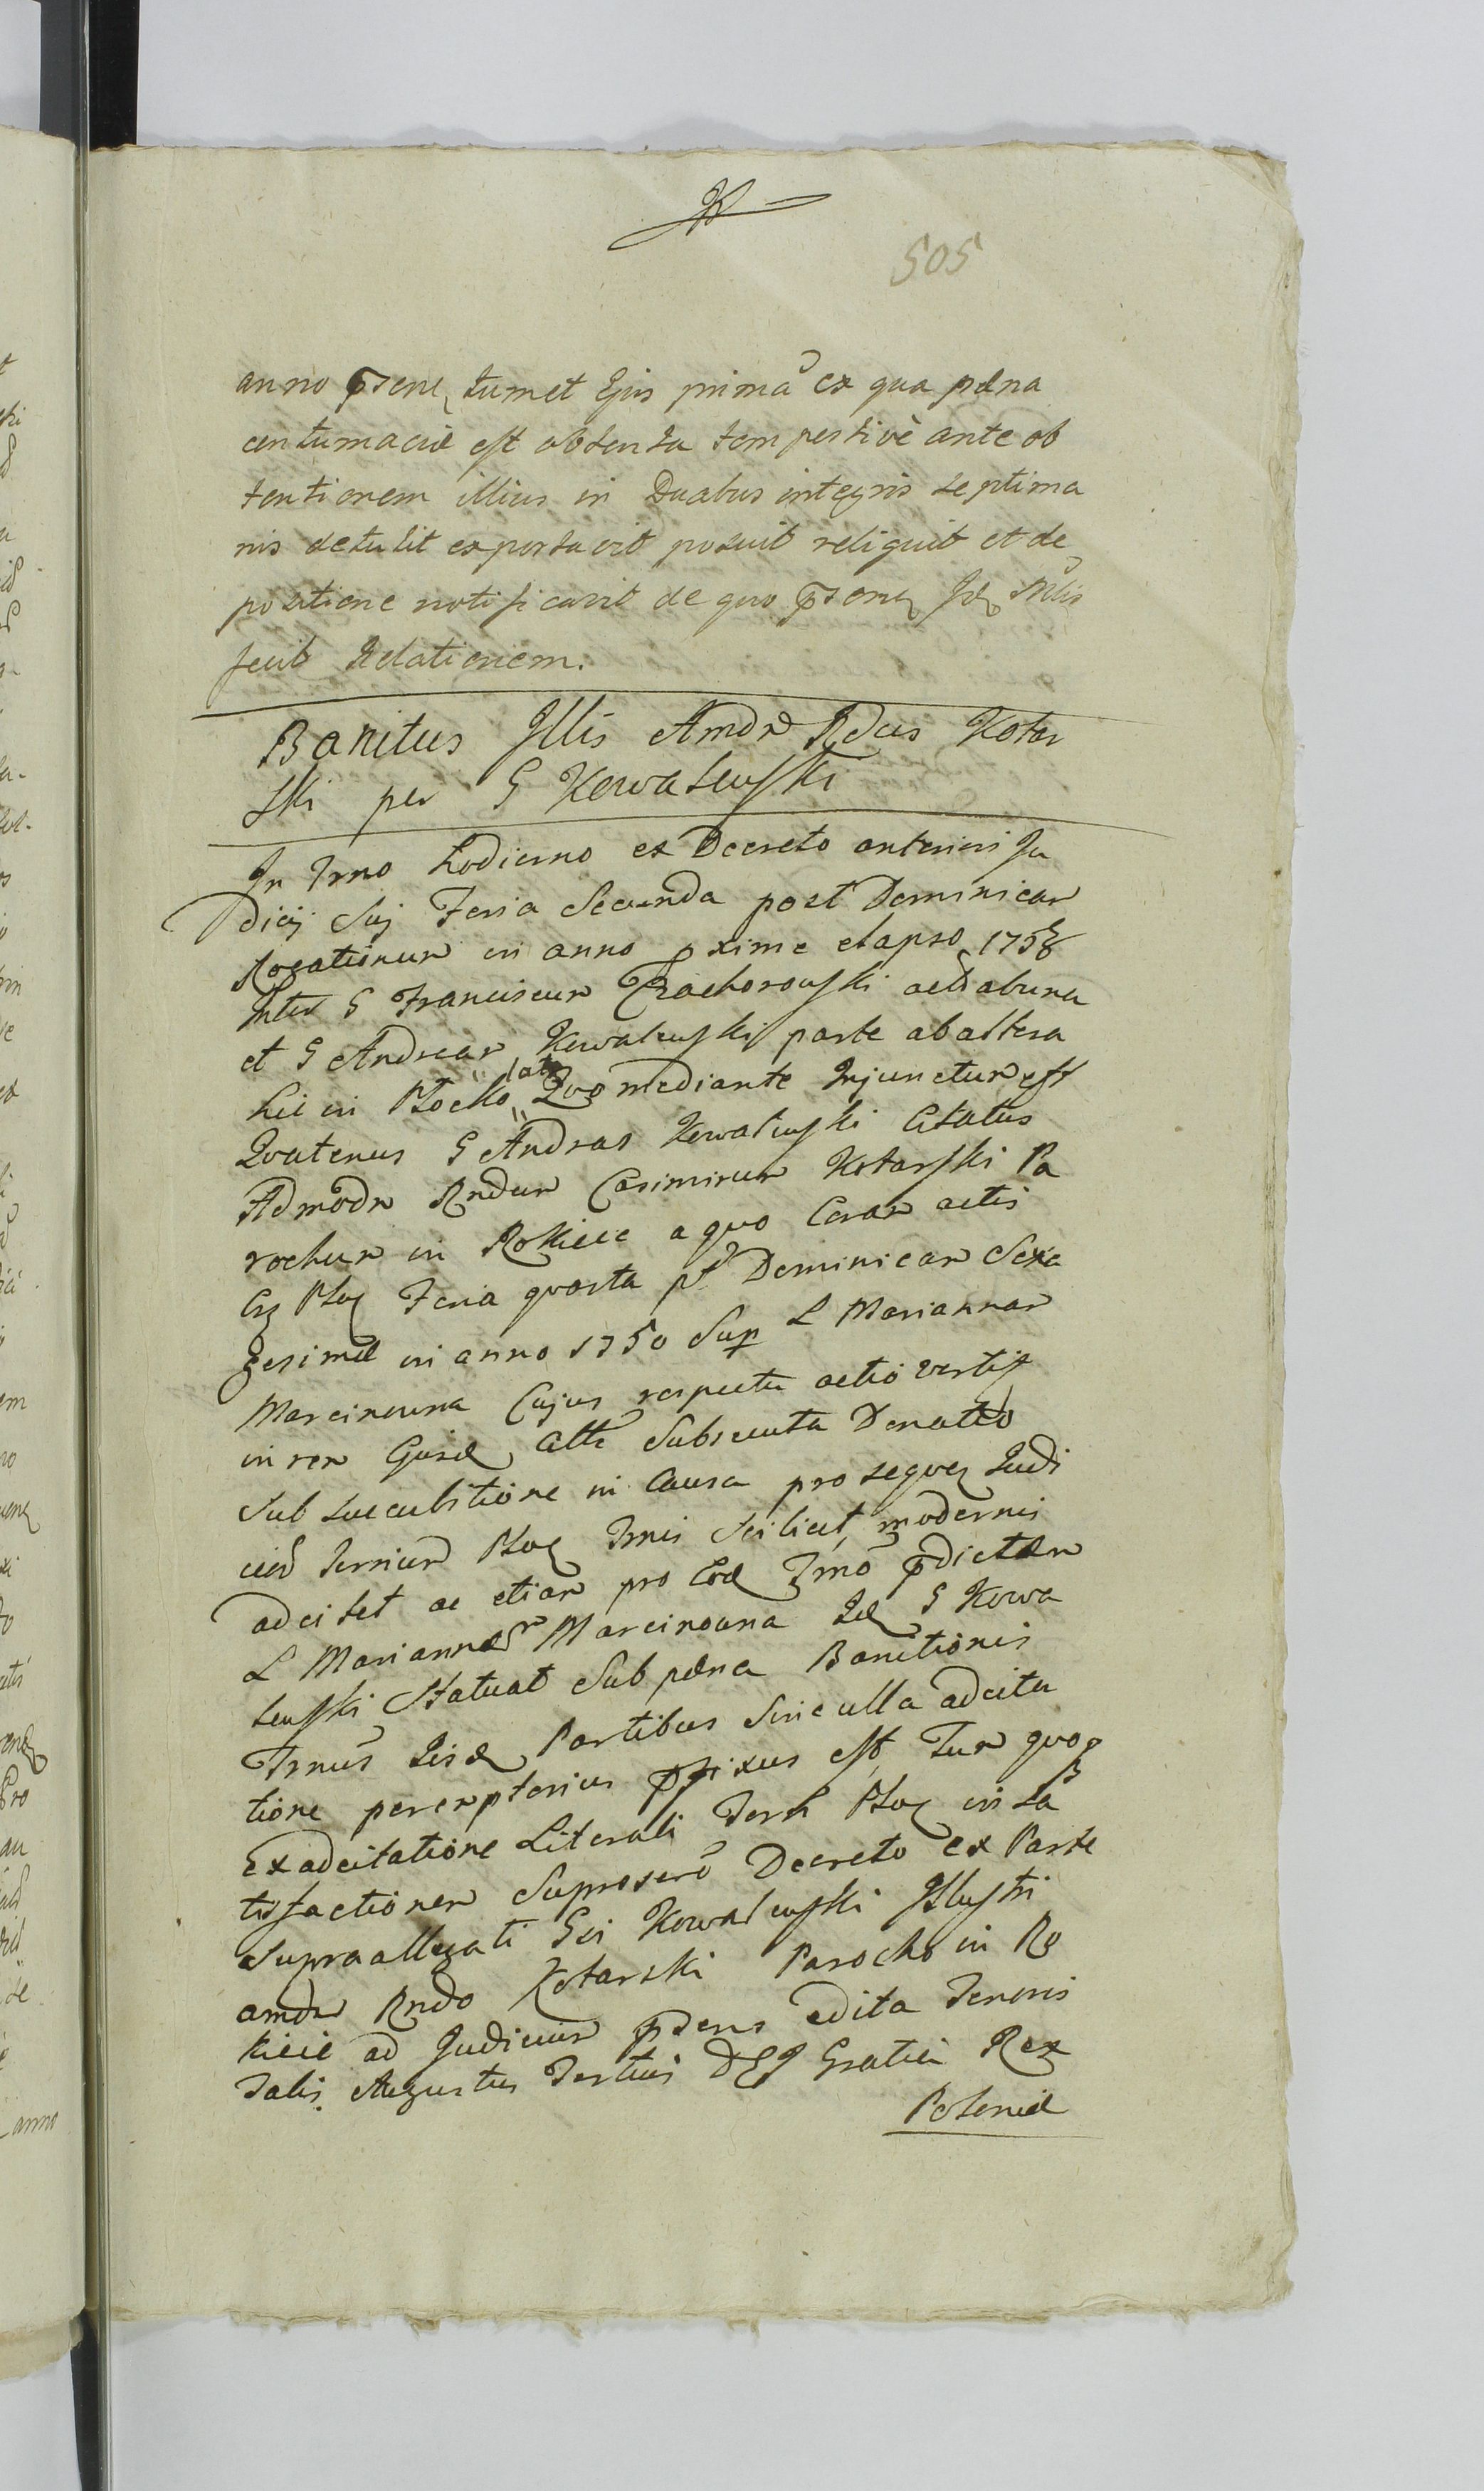 505
anno psene tumet Ejus prima ex qua pæna
contumaciæ est obtenta tempestivè ante ob
tentionem illius in Duabus integris septima
nis detulit exportavit posuit reliquit et de
positione notificavit de quo psene
fecit Relationem.
Banitus Illis Amdr Rdus Kotar
ski per G Kowalewski
In Trno hodierno ex Decreto anteriori Ju
dicij Sui Feria Secunda post Dominicam
Rogationum in anno pxime elapso 1758
Inter G Franciscum Czachorowski ab una
et G Andream Kowalewski parte ab altera
hic in Plocko lato Quo mediante Injunctum est
Quatenus G Andreas Kowalewski Citatus
Admodr Rndum Casimirum Kotarski Pa
rochum in Rokicie a quo Coram actis
Plo Feria quarta pt Dominicam Sexa
gesimæ in anno 1750 Sup L Mariannam
Marcinowna Cujus respectu actio vertit
in rem Gnsæ Atte Subsecuta Donatio
Sub succubitione in Causa pro seque Judi
ciũ Terrium Ploc Trnis scilicet modernis
adcitet ac etiam pro Eod Trno pdictam
L Mariannam Marcinowna G Kowa
lewski Statuat Sub pæna Banitionis
Trnus Partibus Sine ulla adcita
tione peremptorius pfixus est, Tum quoq
Ex adcitatione Literali Terri Ploc in sa
tisfactionem Decreto Ex Parte
Supraallegati Gsi Kowalewski Illustri
amdr Rndo Kotarski Parocho in Ro
kicie ad Judicium psens edita Tenoris
Talis. Augustus Tertius DEI Gratia Rex
Poloniæ